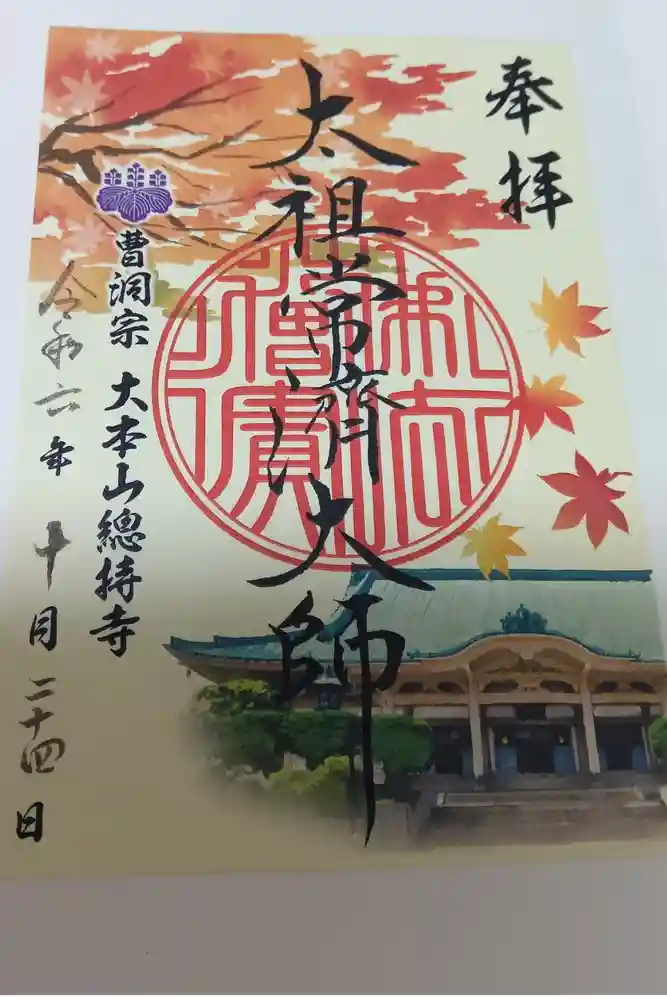 奉拝
太祖常濟大師
佛法僧寶
曹洞宗 大本山總持寺
令和六年 十月二十四日